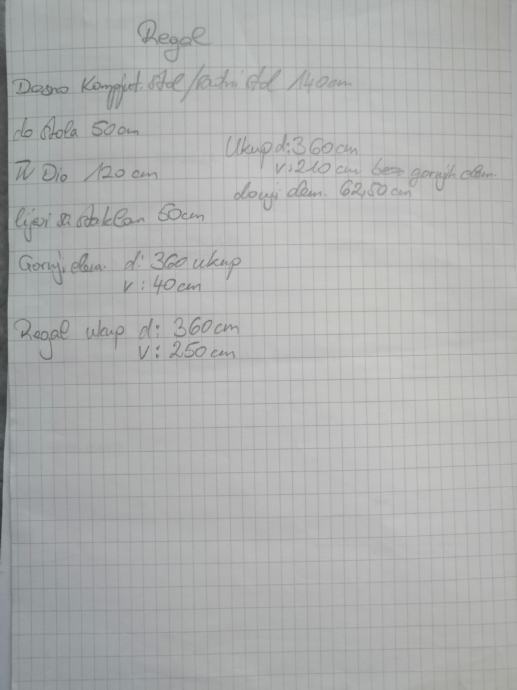 Regal
Desno Kompjut. stol / radni stol 140cm
do stola 50cm
Ukup d: 360cm
v: 210 cm bez gornjih elem.
TV Dio 120cm
donji elem. 62,50cm
lijevi sa staklom 50cm
Gornji elem. d: 360 ukup
v: 40cm
Regal ukup d: 360cm
v: 250cm